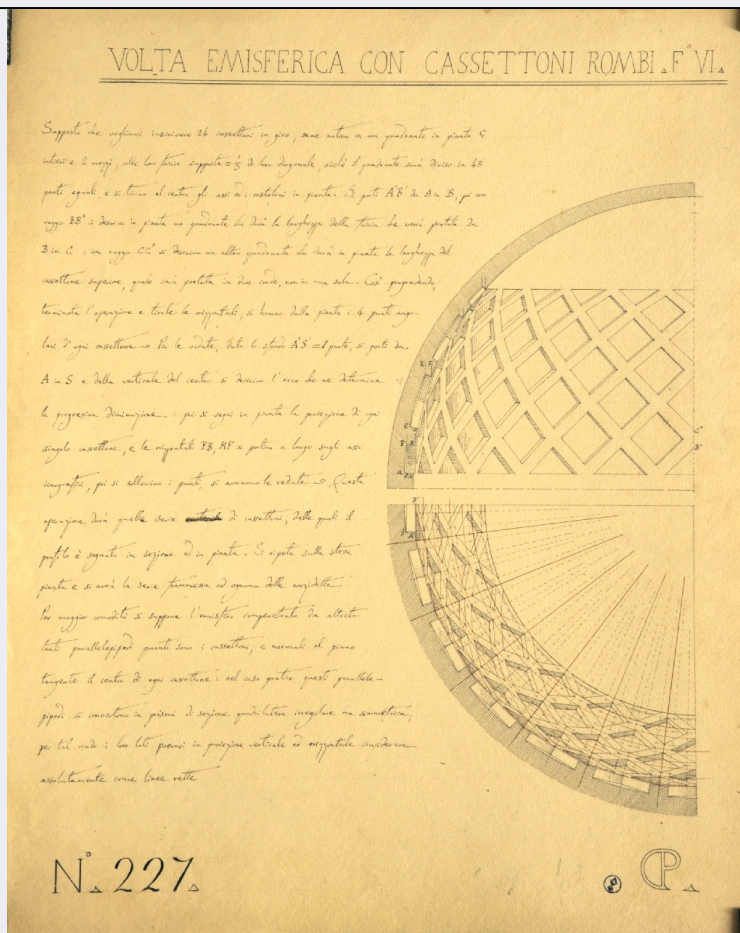 VOLTA EMISFERICA CON CASSETTONI ROMBI. F° VI.
Supposto che vogliansi inscrivere 24 cassettoni in giro, sene notino in un quadrante in pianta 5
interi e 2 mezzi, colle loro fascie supposta = 1/3 di loro diagonale, sicchè il quadrante sarà diviso in 48
parti eguali, e si tirino al centro gli assi ed i costoloni in pianta. Si porti A'B' da A in B, poi con
raggio BB° si descriva in pianta un quadrante che darà la larghezza della fascia che verrà portata da
B in C: con raggio CC° si descriva un altro quadrante che darà in pianta la larghezza del
cassettone superiore, quale sarà portata in due corde, non in una sola. Così proseguendo,
terminata l'operazione e tirate le orizzontali, si hanno dalla pianta i 4 punti ango-
lari d'ogni cassettone. Per le vedute, dato lo sfondo A'S' = parti, si porti da
A in S e dalla verticale del centro si descriva l'arco che ne determina
la progressiva diminuzione: poi si segni in pianta la posizione di ogni
singolo cassettone, e le orizzontali si portino a luogo sugli assi
icnografici, poi si sollevino i punti, si avranno le vedute. Questa
operazione darà quelle serie di cassettoni, delle quali il
profilo è segnato in sezione ed in pianta. Si ripeta sulla stessa
pianta e si avrà la serie frammessa ad ognuna delle anzidette
Per maggior comodità si suppone l'emisfero compenetrato da altret-
tanti parallelepipedi quanti sono i cassettoni, e normali al piano
tangente il centro di ogni cassettone: nel caso pratico questi parallele-
pipedi si convertono in prismi di sezione quadrilatera irregolare ma simmetrica,
per tal modo i loro lati possonsi in proiezione verticale ed orizzontale considerare
assolutamente come linee rette
N°. 227.
CP.